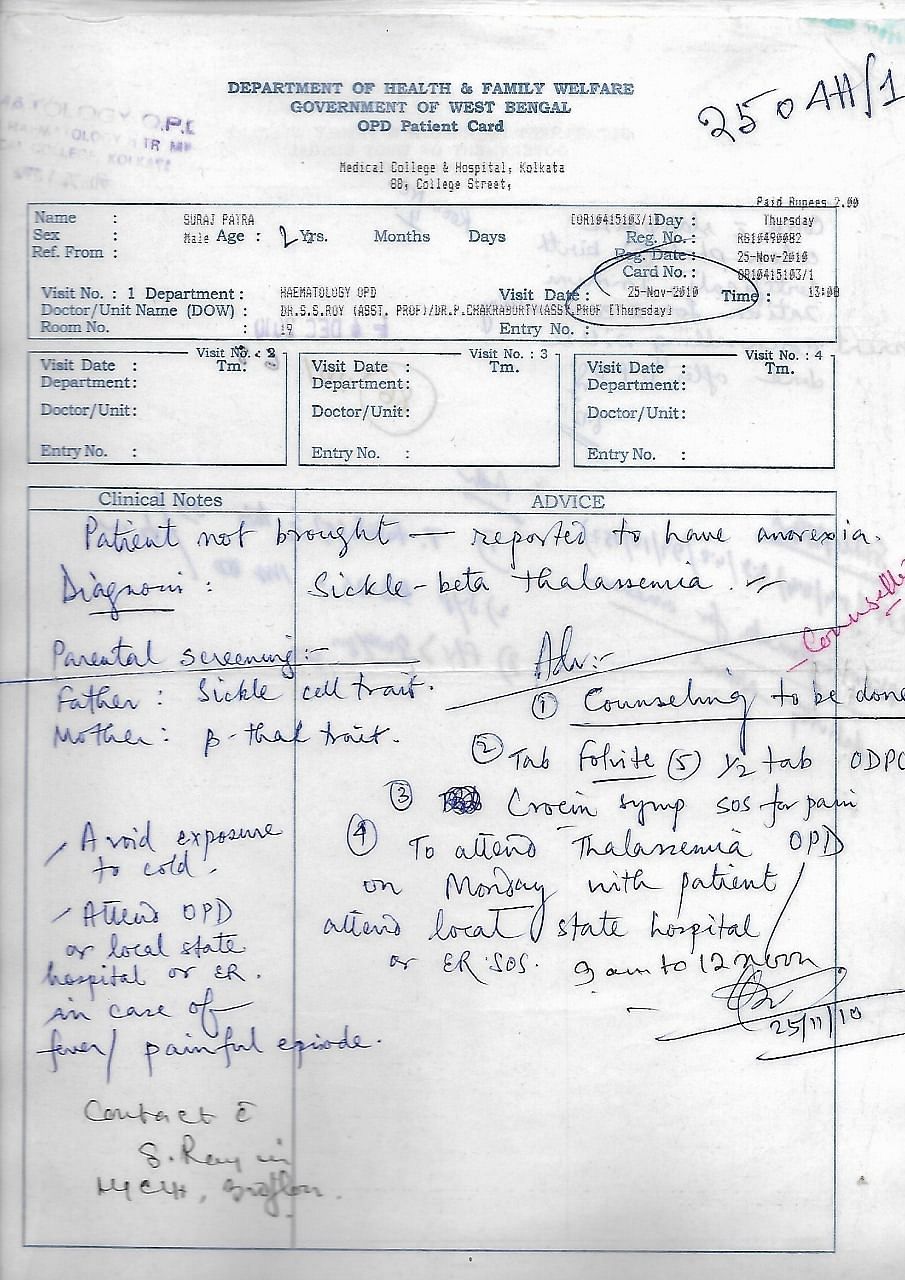 DEPARTMENT OF HEALTH & FAMILY WELFARE
GOVERNMENT OF WEST BENGAL
OPD Patient Card
250AH/1
Medical College & Hospital, Kolkata
88, College Street,
Paid Rupees 2.00
Name : SURAJ PATRA [OR10415103/1] Day : Thursday
Sex : Male Age : 2 Yrs. Months Days Reg. No. : RB10490082
Ref. From : Reg. Date : 25-Nov-2010
Card No. : OR10415103/1
Visit No. : 1 Department : HAEMATOLOGY OPD Visit Date : 25-Nov-2010 Time : 13:08
Doctor/Unit Name (DOW) : DR.S.S.ROY (ASST. PROF)/DR.P.CHAKRABORTY(ASST.PROF [Thursday]
Room No. : 19 Entry No. :
Visit No. : 2
Visit Date : Tm.
Department:
Doctor/Unit:
Entry No. :
Visit No. : 3
Visit Date : Tm.
Department:
Doctor/Unit:
Entry No. :
Visit No. : 4
Visit Date : Tm.
Department:
Doctor/Unit:
Entry No. :
Clinical Notes ADVICE
Patient not brought — reported to have anorexia.
Diagnosis : Sickle-beta Thalassemia.
Parental screening:-
Father : Sickle cell trait.
Mother : β-thal trait.
/ Avoid exposure
to cold.
/ Attend OPD
or local state
hospital or ER.
in case of
fever/ painful episode.
Contact c̄
S. Ray in
MCH,
Adv:-
① Counseling to be done
② Tab Folvite (5) 1/2 tab ODPC
③ Crocin syrup SOS for pain
④ To attend Thalassemia OPD
on Monday with patient /
attend local state hospital
or ER SOS. 9 am to 12 noon
25/11/10